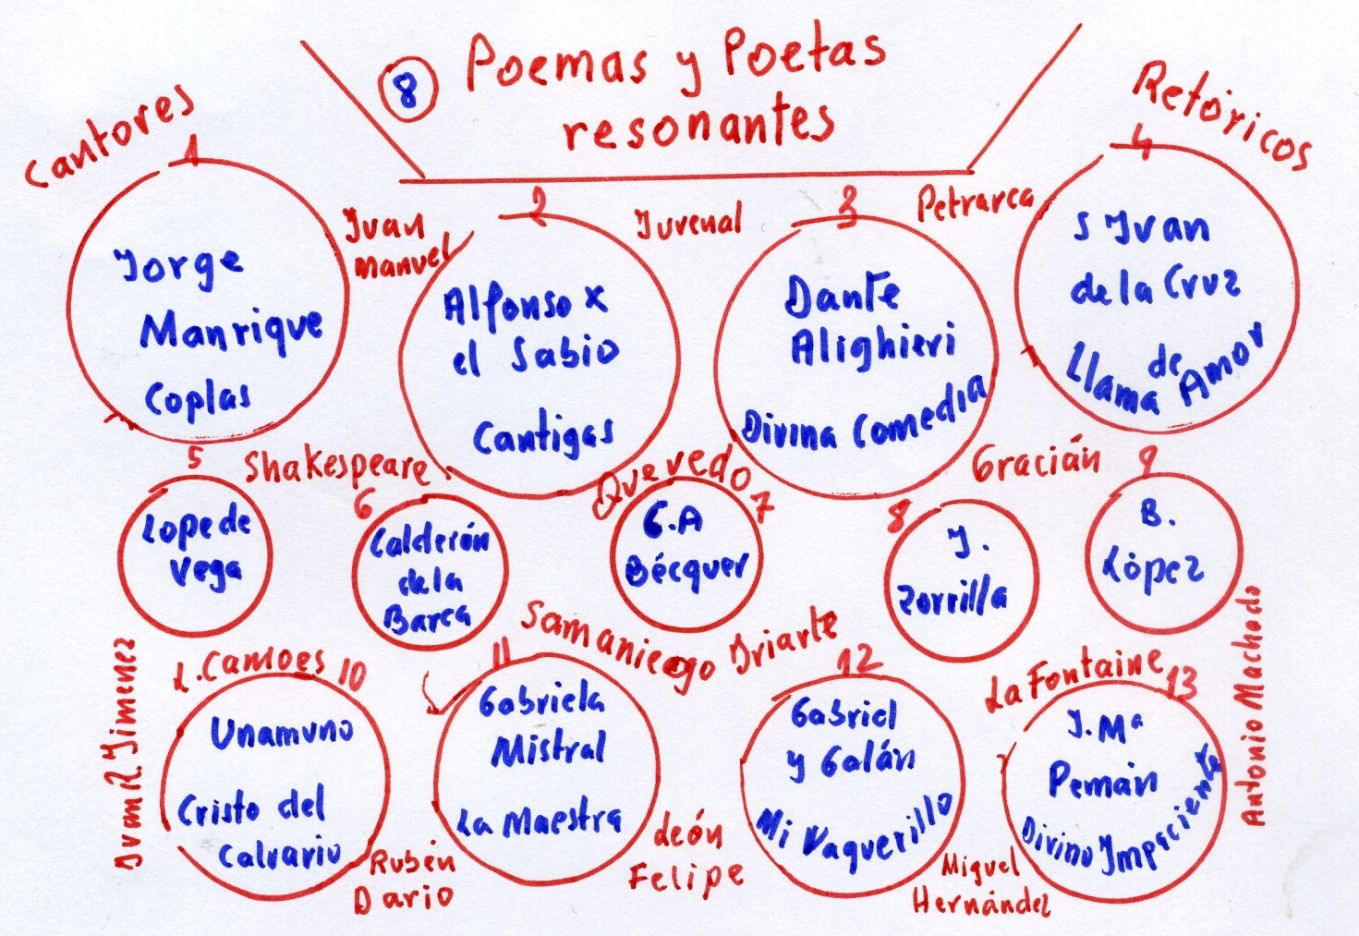 8
Poemas y Poetas
resonantes
Cantores
Retóricos
1
Jorge
Manrique
Coplas
Juan
Manuel
2
Alfonso X
el Sabio
Cantigas
Juvenal
3
Dante
Alighieri
Divina Comedia
Petrarca
4
S Juan
de la Cruz
Llama de Amor
5
Lope de
Vega
Shakespeare
6
Calderón
de la
Barca
Quevedo
7
G.A
Bécquer
8
J.
Zorrilla
Gracián
9
B.
López
Juan R. Jimenez
L. Camoes
10
Unamuno
Cristo del
Calvario
Rubén
Dario
11
Gabriela
Mistral
La Maestra
Samaniego Iriarte
León
Felipe
12
Gabriel
y Galán
Mi Vaquerillo
Miguel
Hernández
La Fontaine
13
J. Mª
Pemán
Divino Impaciente
Antonio Machado